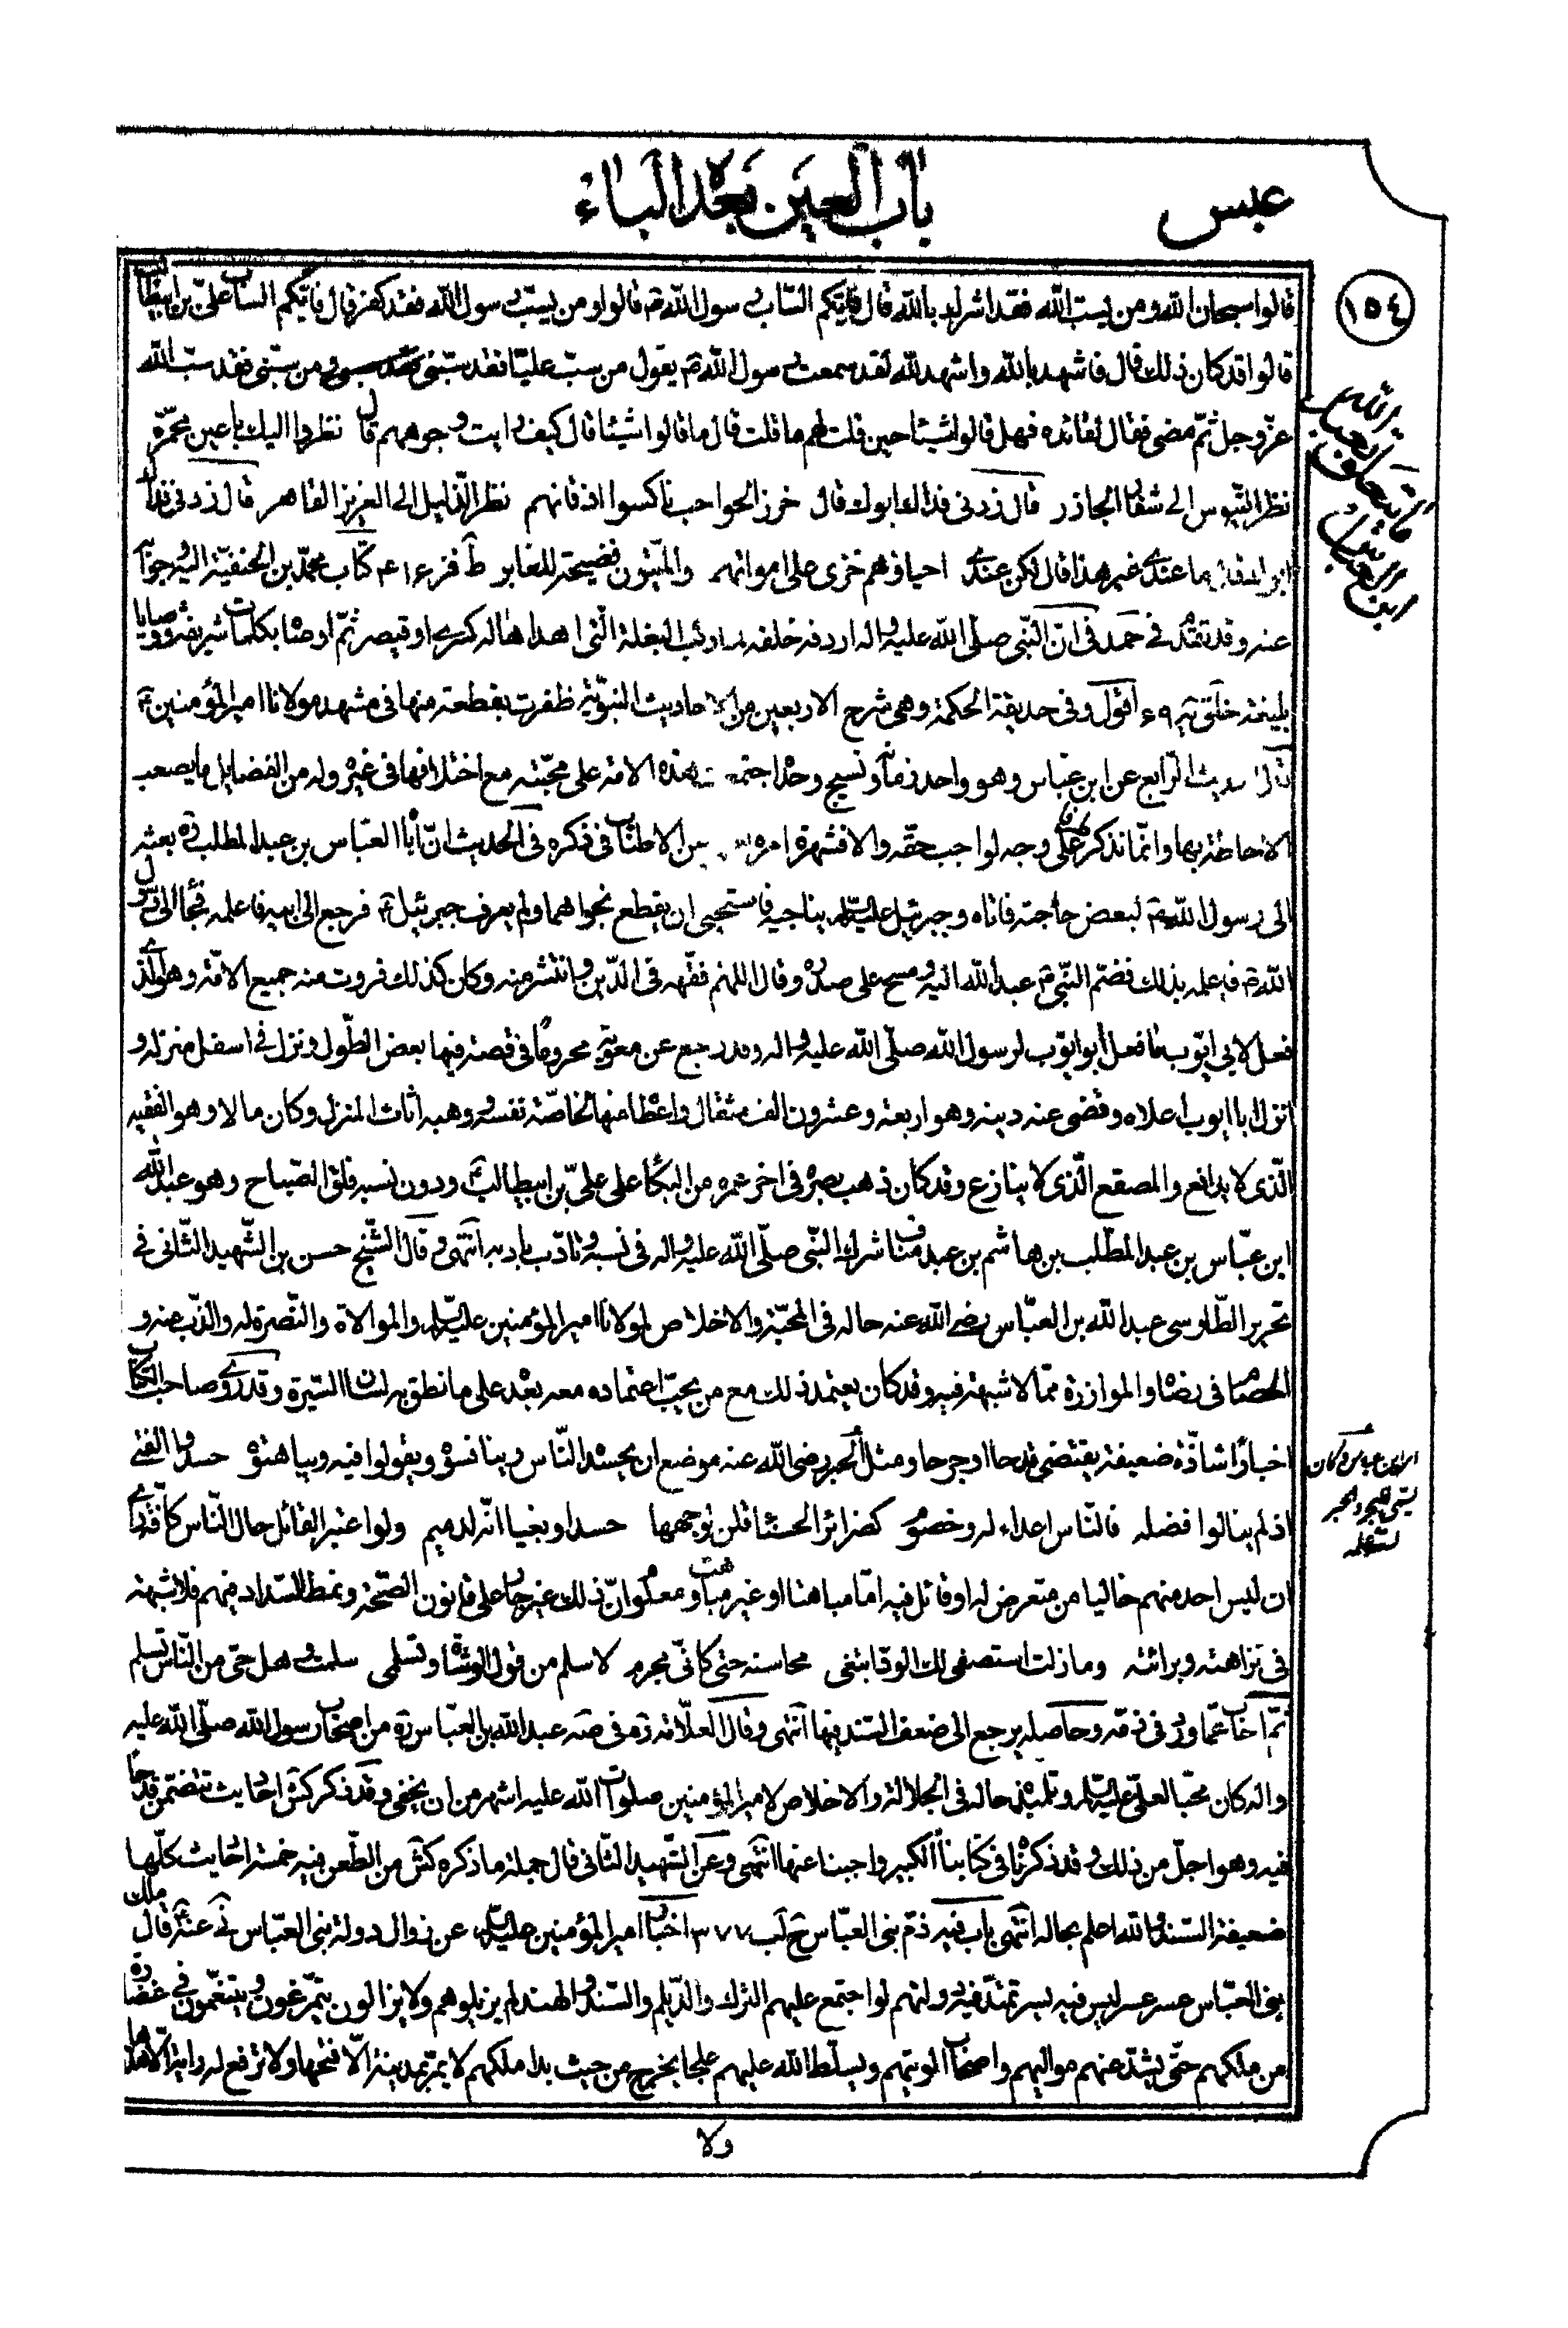 عبس
باب العين بعد الباء
١٥٤
قالوا سبحان الله ومن يسب الله فقد اشرك بالله قال فايكم الساب رسول الله ص قالوا ومن يسب رسول الله فقد كفر قال فايكم الساب علي بن ابيطالب
قالوا قد كان ذلك قال فاشهد بالله واشهد لله لقد سمعت رسول الله ص يقول من سب عليا فقد سبني ومن سبني فقد سب الله
عز وجل ثم مضى فقال لقائده فهل قالوا شيئا حين قلت لهم ما قلت قال ما قالوا شيئا قال كيف رايت وجوههم قال نظروا اليك باعين محمرة
نظر التيوس الى شفار الجازر قال زدني فداك ابوك قال خرز الحواجب ناكسوا اذقانهم نظر الذليل الى العزيز القاهر قال زدني فداك
ابوك فقال ما عندي غير هذا قال لكن عندي احياؤهم خزي على امواتهم والميتون فضيحة للغابر ط فز ٤١٦ كتاب محمد بن الحنفية اليه وجوابه
عنه وقد تقدم في حمد في ان النبي صلى الله عليه واله اردفه خلفه لما ركب البغلة التي اهداها له كسرى او قيصر ثم اوصاه بكلمات شريفة ووصايا
بليغة خلق ٩٤ اقول وفي حديقة الحكمة وهي شرح الاربعين من الاحاديث النبوية ظفرت بقطعة منها في مشهد مولانا امير المؤمنين ع
الحديث الرابع عن ابن عباس وهو واحد زمانه ونسيج وحده اجتمعت هذه الامة على محبته مع اختلافها في غيره وله من الفضايل ما يصعب
الاحاطة بها وانما نذكر طرفا على وجه لواجب حقه والا فشهرة امره من الاطناب في ذكره في الحديث ان اباه العباس بن عبد المطلب ره بعثه
الى رسول الله ص لبعض حاجته فاتاه وجبرئيل عليه السلام يناجيه فاستحيى ان يقطع نجواهما ولم يعرف جبرئيل ع فرجع الى ابيه فاعلمه فجاء الى رسول
الله ص فاعلمه بذلك فضم النبي ص عبد الله اليه ومسح على صدره وقال اللهم فقهه في الدين وانتشر منه وكان كذلك فروت منه جميع الامة وهو الذي
فعل لابي ايوب ما فعل ابو ايوب لرسول الله صلى الله عليه واله وقد رجع عن معوية محروما في قصة فيها بعض الطول ونزل في اسفل منزله و
انزل ابا ايوب اعلاه وقضى عنه دينه وهو اربعة وعشرون الف مثقال واعطاه منها لخاصة نفسه ووهبه اثاث المنزل وكان مالا وهو الفقيه
الذي لا يدافع والمصقع الذي لا ينازع وقد كان ذهب بصره في اخر عمره من البكاء على علي بن ابيطالب ع ودون نسبه فلق الصباح وهو عبد الله
ابن عباس بن عبد المطلب بن هاشم بن عبد مناف شارك النبي صلى الله عليه واله في نسبه وتادب بادبه انتهى وقال الشيخ حسن بن الشهيد الثاني في
تحرير الطاوسي عبد الله بن العباس رضي الله عنه حاله في المحبة والاخلاص لمولانا امير المؤمنين عليه السلام والموالاة والنصرة له والذب عنه و
الخصام في رضاه والموازرة مما لا شبهة فيه وقد كان يعتمد ذلك مع من يجب اعتماده معه بعد على ما نطق به لسان السيرة وقد روى صاحب الكتاب
اخبارا شاذة ضعيفة يقتضي قدحا او جرحا ومثل الحبر رضي الله عنه موضع ان يحسده الناس وينافسوه ويقولوا فيه ويباهتوه حسدوا الفتى
اذ لم ينالوا فضله فالناس اعداء له وخصوم كضرائر الحسناء قلن لوجهها حسدا وبغيا انه لدميم ولو اعتبر القائل حال الناس كافة راى
ان ليس احد منهم خاليا من متعرض له او قائل فيه اما مباهتا او غير مباهت ومعلوم ان ذلك غير جار على قانون الصحة ونمط السداد منهم فلا شبهة
في نزاهته وبرائته وما زلت استصفي لك الود ابتغي محاسنه حتى كاني مجرم لاسلم من قول الوشاة وتسلمي سلمت وهل حي من الناس يسلم
ثم اجاب عما ورد في ذمه وحاصله يرجع الى ضعف السند فيها انتهى وقال العلامة ره في صه عبد الله بن العباس ره من اصحاب رسول الله صلى الله عليه
واله كان محبا لعلي عليه السلام وتلميذه حاله في الجلالة والاخلاص لامير المؤمنين صلوات الله عليه اشهر من ان يخفى وقد ذكر كش احاديث تتضمن قدحا
فيه وهو اجل من ذلك وقد ذكرناها في كتابنا الكبير واجبنا عنها انتهى وعن الشهيد الثاني قال جملة ما ذكره كش من الطعن فيه خمسة احاديث كلها
ضعيفة السند والله اعلم بحاله انتهى باب فيه ذم بني العباس ح لب ٣٧٧ اخبار امير المؤمنين عليه السلام عن زوال دولة بني العباس ني عنه ع قال ملك
بني العباس عسر عسر ليس فيه يسر تمتد فيه دولتهم لو اجتمع عليهم الترك والديلم والسند والهند لم يزيلوهم ولا يزالون يتمرغون ويتنعمون في غضارة
من ملكهم حتى يشذ عنهم مواليهم واصحاب الويتهم ويسلط الله عليهم علجا يخرج من حيث بدا ملكهم لا يمر بمدينة الا فتحها ولا ترفع له راية الا هدها
ابن عباس وكان
يسمى البحر والحبر
لسعة علمه
ولا